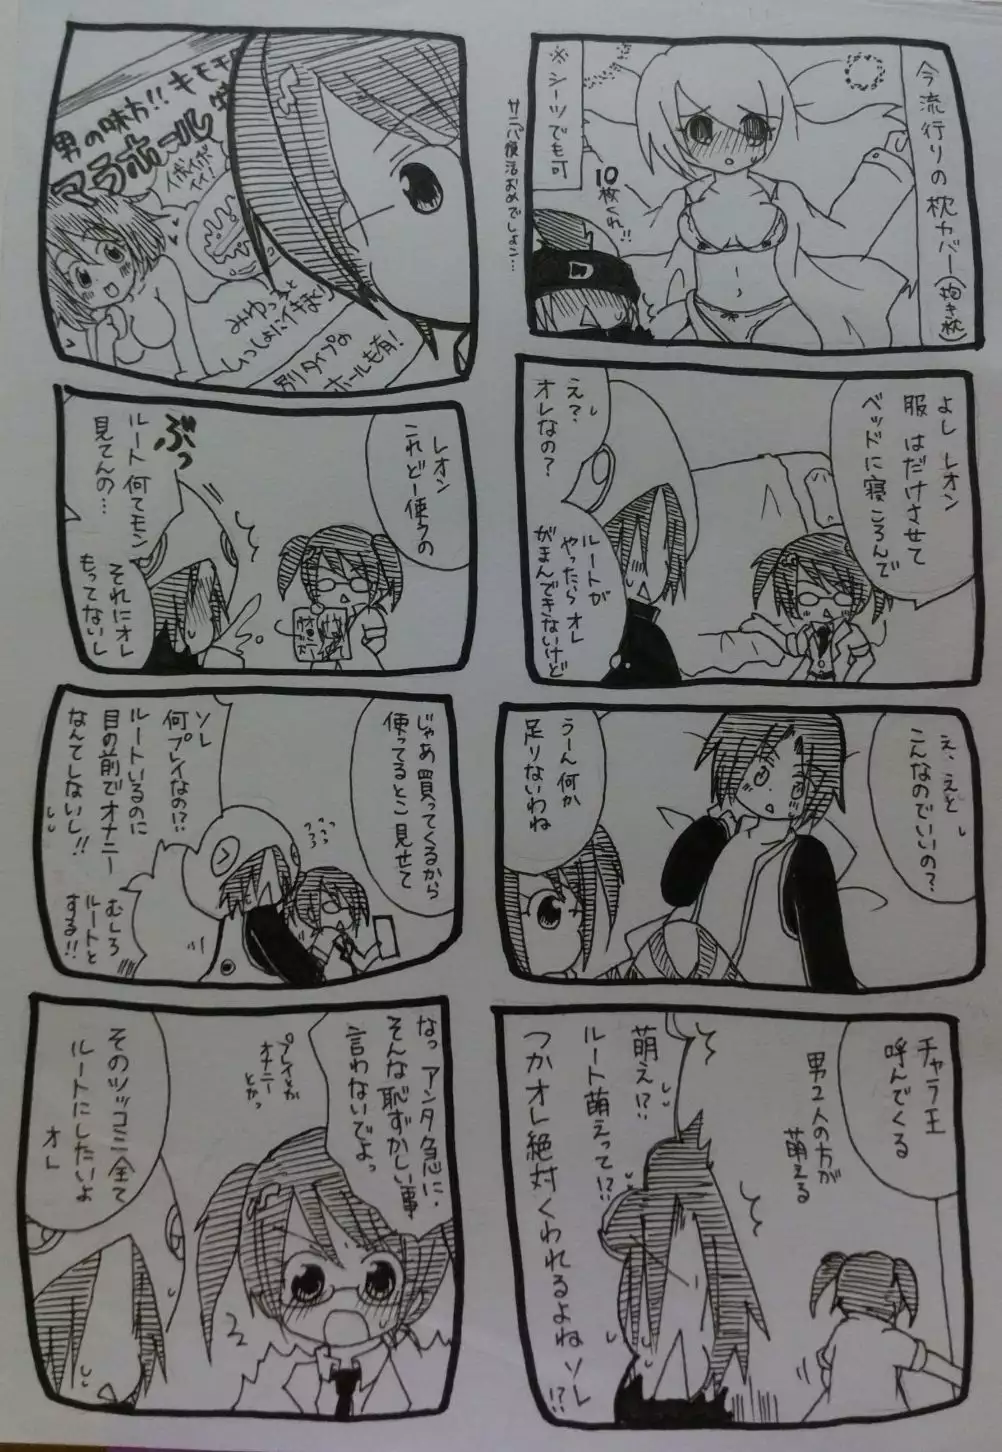 今流行りの枕カバー(抱き枕)
※シーツでも可
10枚くれ!!
サニバ復活おめでしょん…
よし レオン
服 はだけさせて
ベッドに寝ころんで
え?
オレなの?
ルートが
やったら オレ
がまんできないけど
え、えと
こんなのでいいの?
うーん 何か
足りないわね
チャラ王
呼んでくる
男2人の方が
萌える
萌え!?
ルート萌えって!?
つかオレ絶対くわれるよね ソレ!?
男の味方!! キモチ
アラホール
イボイボ
イイ!
みゆっと
いっしょにイキまく
別タイプの
ホールも有!
レオン
これどー使うの
ぶっ
ルート 何てモン
見てんの…
それにオレ
もってないし
じゃあ 買ってくるから
使ってるとこ 見せて
ソレ
何プレイなの!?
ルートいるのに
目の前でオナニー
なんてしないし!!
むしろ
ルートと
する!!
なっ アンタ急に
そんな恥ずかしい事
言わないでよっ
プレイとか
オナニー
とかっ
そのツッコミ全て
ルートにしたいよ
オレ